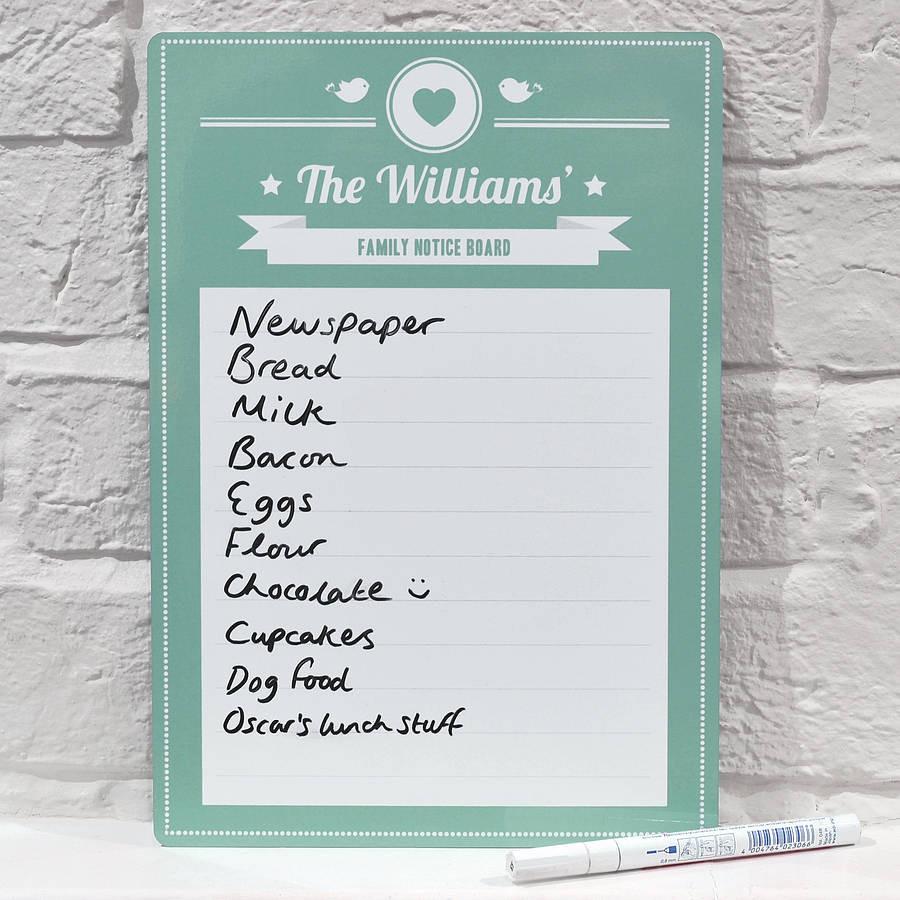 The Williams'
FAMILY NOTICE BOARD
Newspaper
Bread
Milk
Bacon
Eggs
Flour
Chocolate :)
Cupcakes
Dog food
Oscar's lunch stuff
4 004764 023066